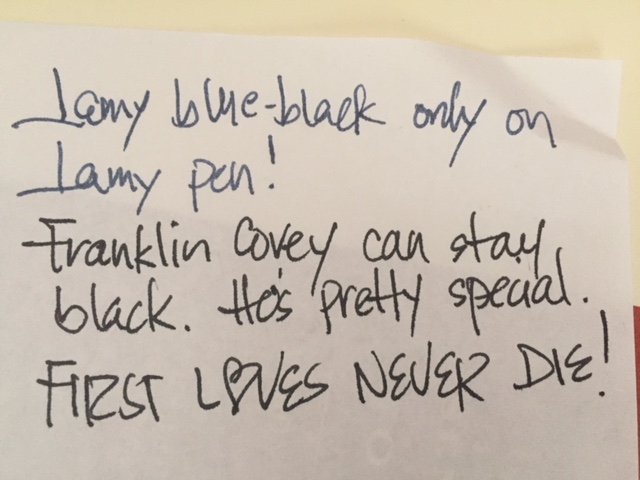 Lamy blue-black only on
Lamy pen!
Franklin Covey can stay
black. He's pretty special.
FIRST LOVES NEVER DIE!